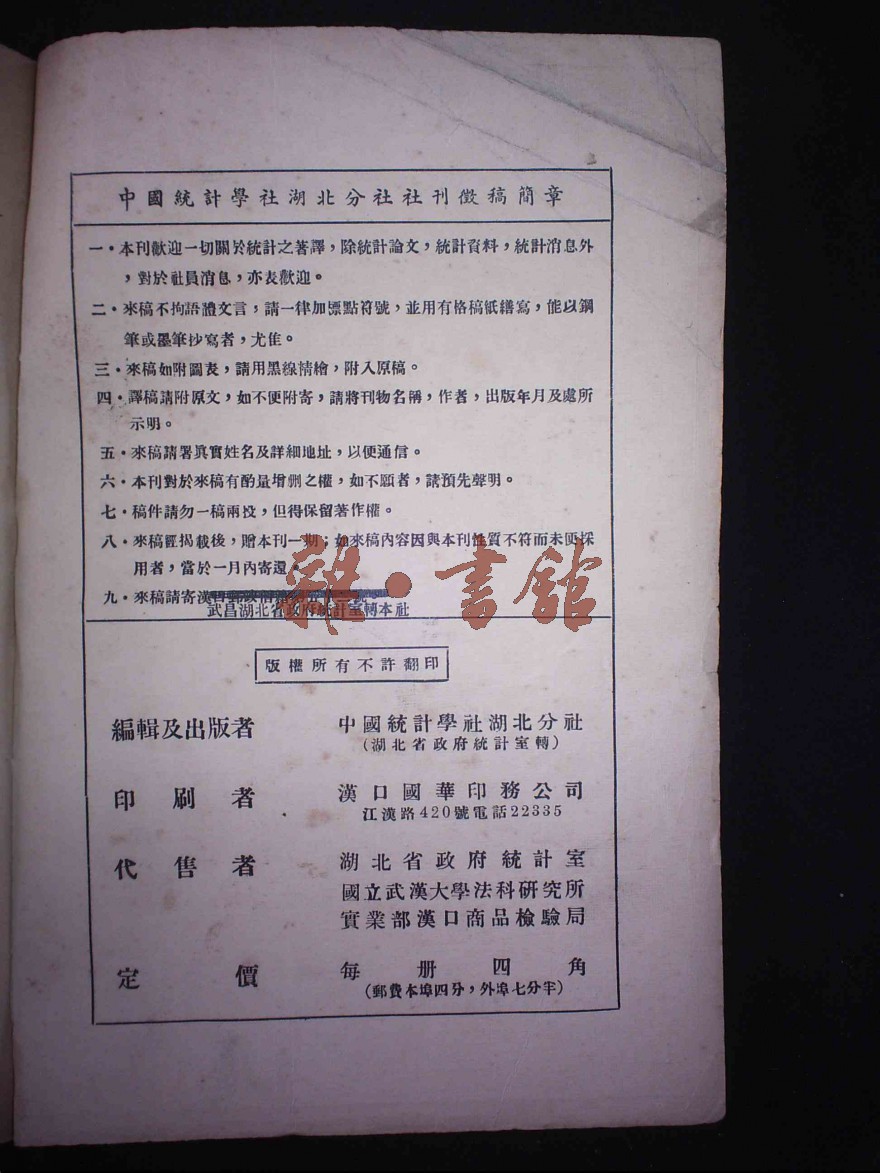 中國統計學社湖北分社社刊徵稿簡章
一・本刊歡迎一切關於統計之著譯，除統計論文，統計資料，統計消息外
，對於社員消息，亦表歡迎。
二・來稿不拘語體文言，請一律加標點符號，並用有格稿紙繕寫，能以鋼
筆或墨筆抄寫者，尤佳。
三・來稿如附圖表，請用黑線精繪，附入原稿。
四・譯稿請附原文，如不便附寄，請將刊物名稱，作者，出版年月及處所
示明。
五・來稿請署眞實姓名及詳細地址，以便通信。
六・本刊對於來稿有酌量增刪之權，如不願者，請預先聲明。
七・稿件請勿一稿兩投，但得保留著作權。
八・來稿經揭載後，贈本刊一期；如來稿內容因與本刊性質不符而未便採
用者，當於一月內寄還。
九・來稿請寄漢口郵政信箱
武昌湖北省政府統計室轉本社
雜・書館
版權所有不許翻印
編輯及出版者 中國統計學社湖北分社
（湖北省政府統計室轉）
印刷者 漢口國華印務公司
江漢路420號電話22335
代售者 湖北省政府統計室
國立武漢大學法科研究所
實業部漢口商品檢驗局
定價 每册四角
（郵費本埠四分，外埠七分半）